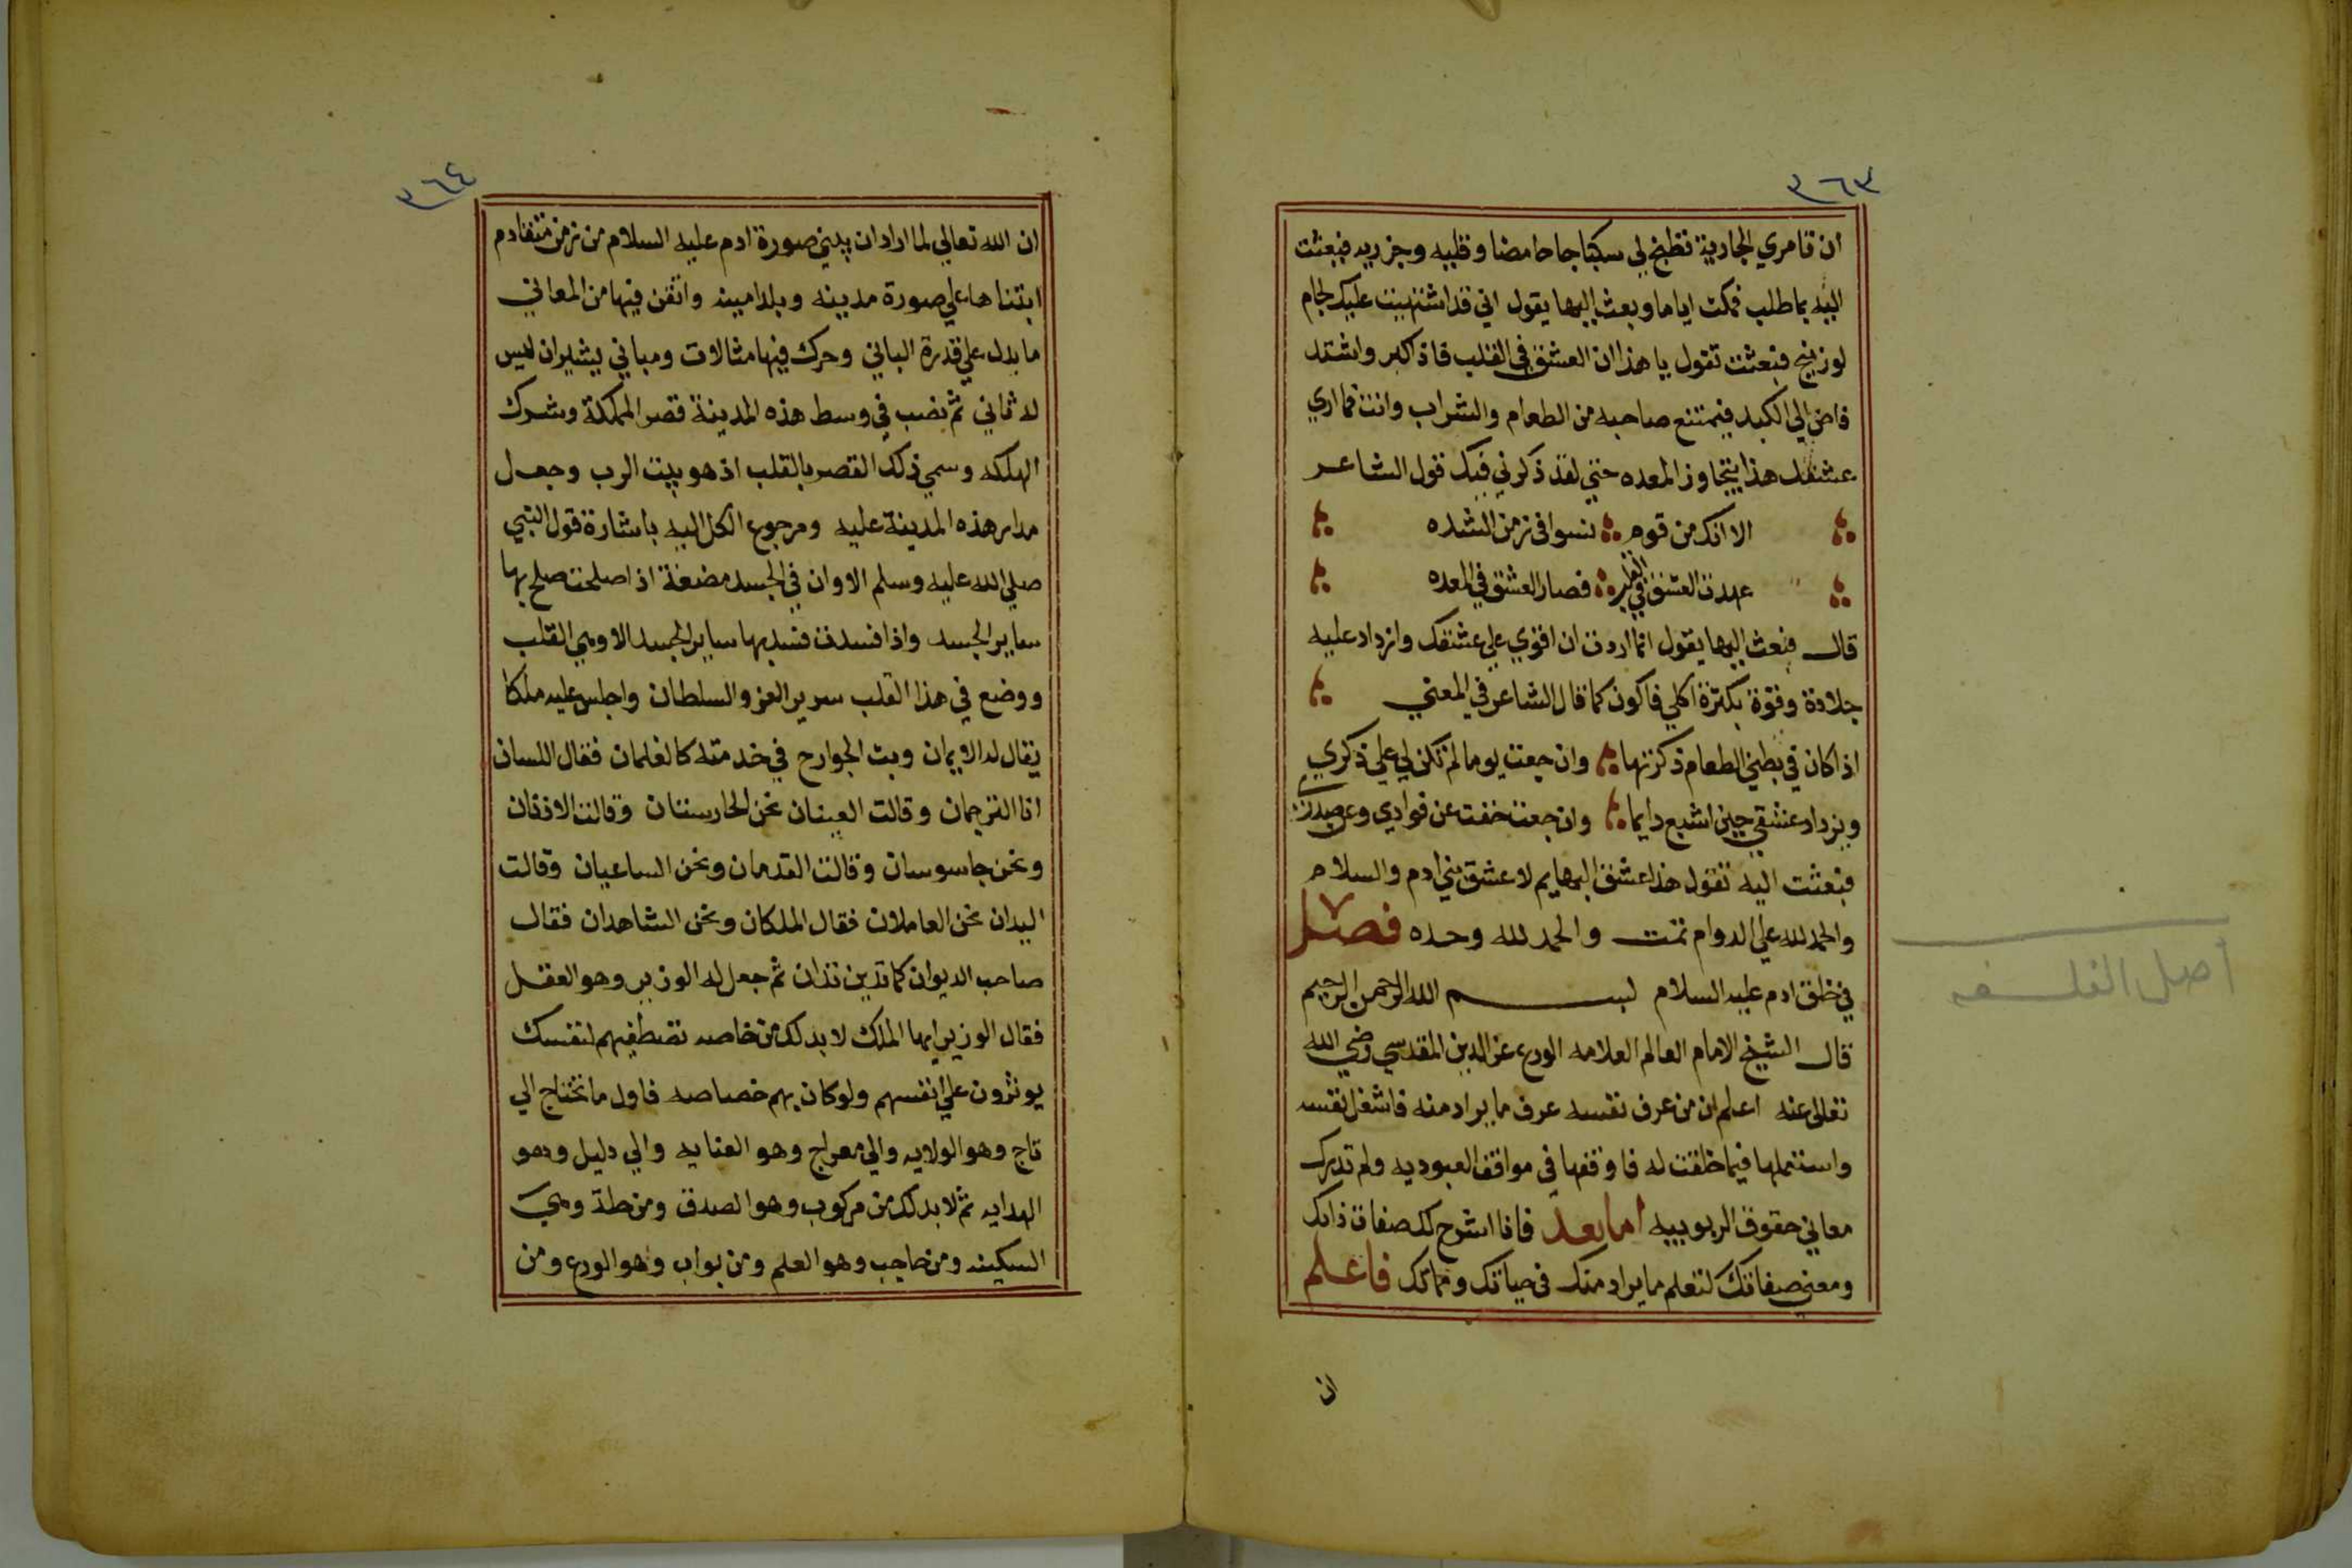 ٣٦٣
ان تامري الجارية تطبخ لي سكباجا حامضا وقليه وجزريه فبعثت
اليه بما طلب فمكث اياما وبعث اليها يقول اني قد اشتهيت عليك لجام
لوزينج فبعثت تقول يا هذا ان العشق في القلب فاذ اكبر واشتد
فاض الي الكبد فيمتنع صاحبه من الطعام والشراب وانت فما اري
عشقك هذا يتجاوز المعده حتي لقد ذكرني فيك قول الشاعر
الا انك من قوم نسوا في زمن الشده
عهدت العشق في القلب فصار العشق في المعده
قال فبعث اليها يقول انما اردت ان اقوي علي عشقك وازداد عليه
جلادة وقوة بكثرة اكلي فاكون كما قال الشاعر في المعني
اذا كان في بطني الطعام ذكرتها وان جعت يوما لم تكن لي علي ذكري
ويزداد عشقي حين اشبع دايما وان جعت خفت عن فوادي وعن صدري
فبعثت اليه تقول هذا عشق البهايم لا عشق بني ادم والسلام
والحمد لله علي الدوام تمت والحمد لله وحده فصل
في خلق ادم عليه السلام بسم الله الرحمن الرحيم
قال الشيخ الامام العالم العلامه الورع عز الدين المقدسي رضي الله
تعالى عنه اعلم ان من عرف نفسه عرف ما يراد منه فاشغل نفسه
واستعملها فيما خلقت له فاوقفها في مواقف العبوديه ولم تدرك
معاني حقوق الربوبيه اما بعد فانا اشرح لك صفات ذاتك
ومعني صفاتك لتعلم ما يراد منك في حياتك ومماتك فاعلم
ان
أصل الفلسفه
٣٦٤
ان الله تعالي لما اراد ان يبني صورة ادم عليه السلام من زمن متقادم
ابتناها علي صورة مدينه وبلد امينه واتقن فيها من المعاني
ما يدل علي قدرة الباني وحرك فيها مثالات ومباني يشير ان ليس
له ثاني ثم نصب في وسط هذه المدينة قصر المملكة وشرك
الهلكه وسمي ذلك القصر بالقلب اذ هو بيت الرب وجعل
مدار هذه المدينة عليه ومرجوع الكل اليه باشارة قول النبي
صلي الله عليه وسلم الا وان في الجسد مضغة اذ اصلحت صلح بها
ساير الجسد واذا فسدت فسد بها ساير الجسد الا وهي القلب
ووضع في هذا القلب سرير العز والسلطان واجلس عليه ملكا
يقال له الايمان وبث الجوارح في خدمته كالغلمان فقال اللسان
انا الترجمان وقالت العينان نحن الحارستان وقالت الاذنان
ونحن جاسوسان وقالت القدمان ونحن الساعيان وقالت
اليدان نحن العاملان فقال الملكان ونحن الشاهدان فقال
صاحب الديوان كما تدين تدان ثم جعل له الوزير وهو العقل
فقال الوزير ايها الملك لا بد لك من خاصه تصطفيهم لنفسك
يوثرون علي انفسهم ولو كان بهم خصاصه فاول ما تحتاج الي
تاج وهو الولايه والي معراج وهو العنايه والي دليل وهو
الهدايه ثم لا بد لك من مركوب وهو الصدق ومن حلة وهي
السكينه ومن حاجب وهو العلم ومن بواب وهو الورع ومن